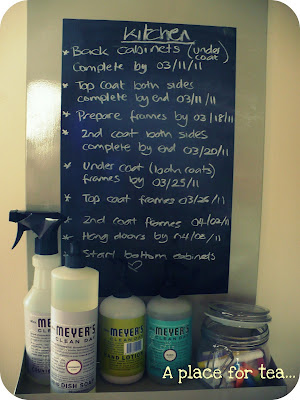 kitchen
* Back cabinets (under coat)
complete by 03/11/11
* Top coat both sides
complete by end 03/11/11
* Prepare frames by 03/18/11
* 2nd coat both sides
complete by end 03/20/11
* Under coat (both coats)
frames by 03/25/11
* Top coat frames 03/26/11
* 2nd coat frames 04/02/11
* Hang doors by 04/03/11
* Start bottom cabinets
MEYER'S
CLEAN DAY
MRS.
MEYER'S
CLEAN DAY
DISH SOAP
MRS.
MEYER'S
CLEAN DAY
HAND LOTION
MRS.
MEYER'S
CLEAN DAY
A place for tea...